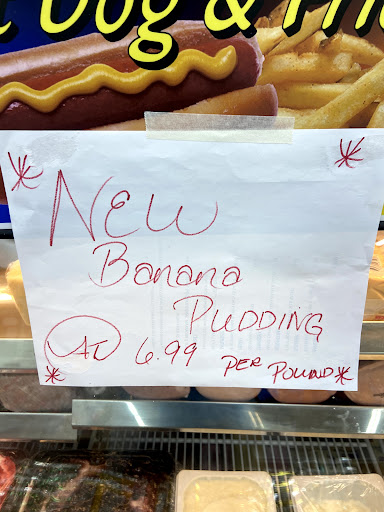 Dog & Fri
NEW
Banana
PUDDING
AT 6.99 PER POUND